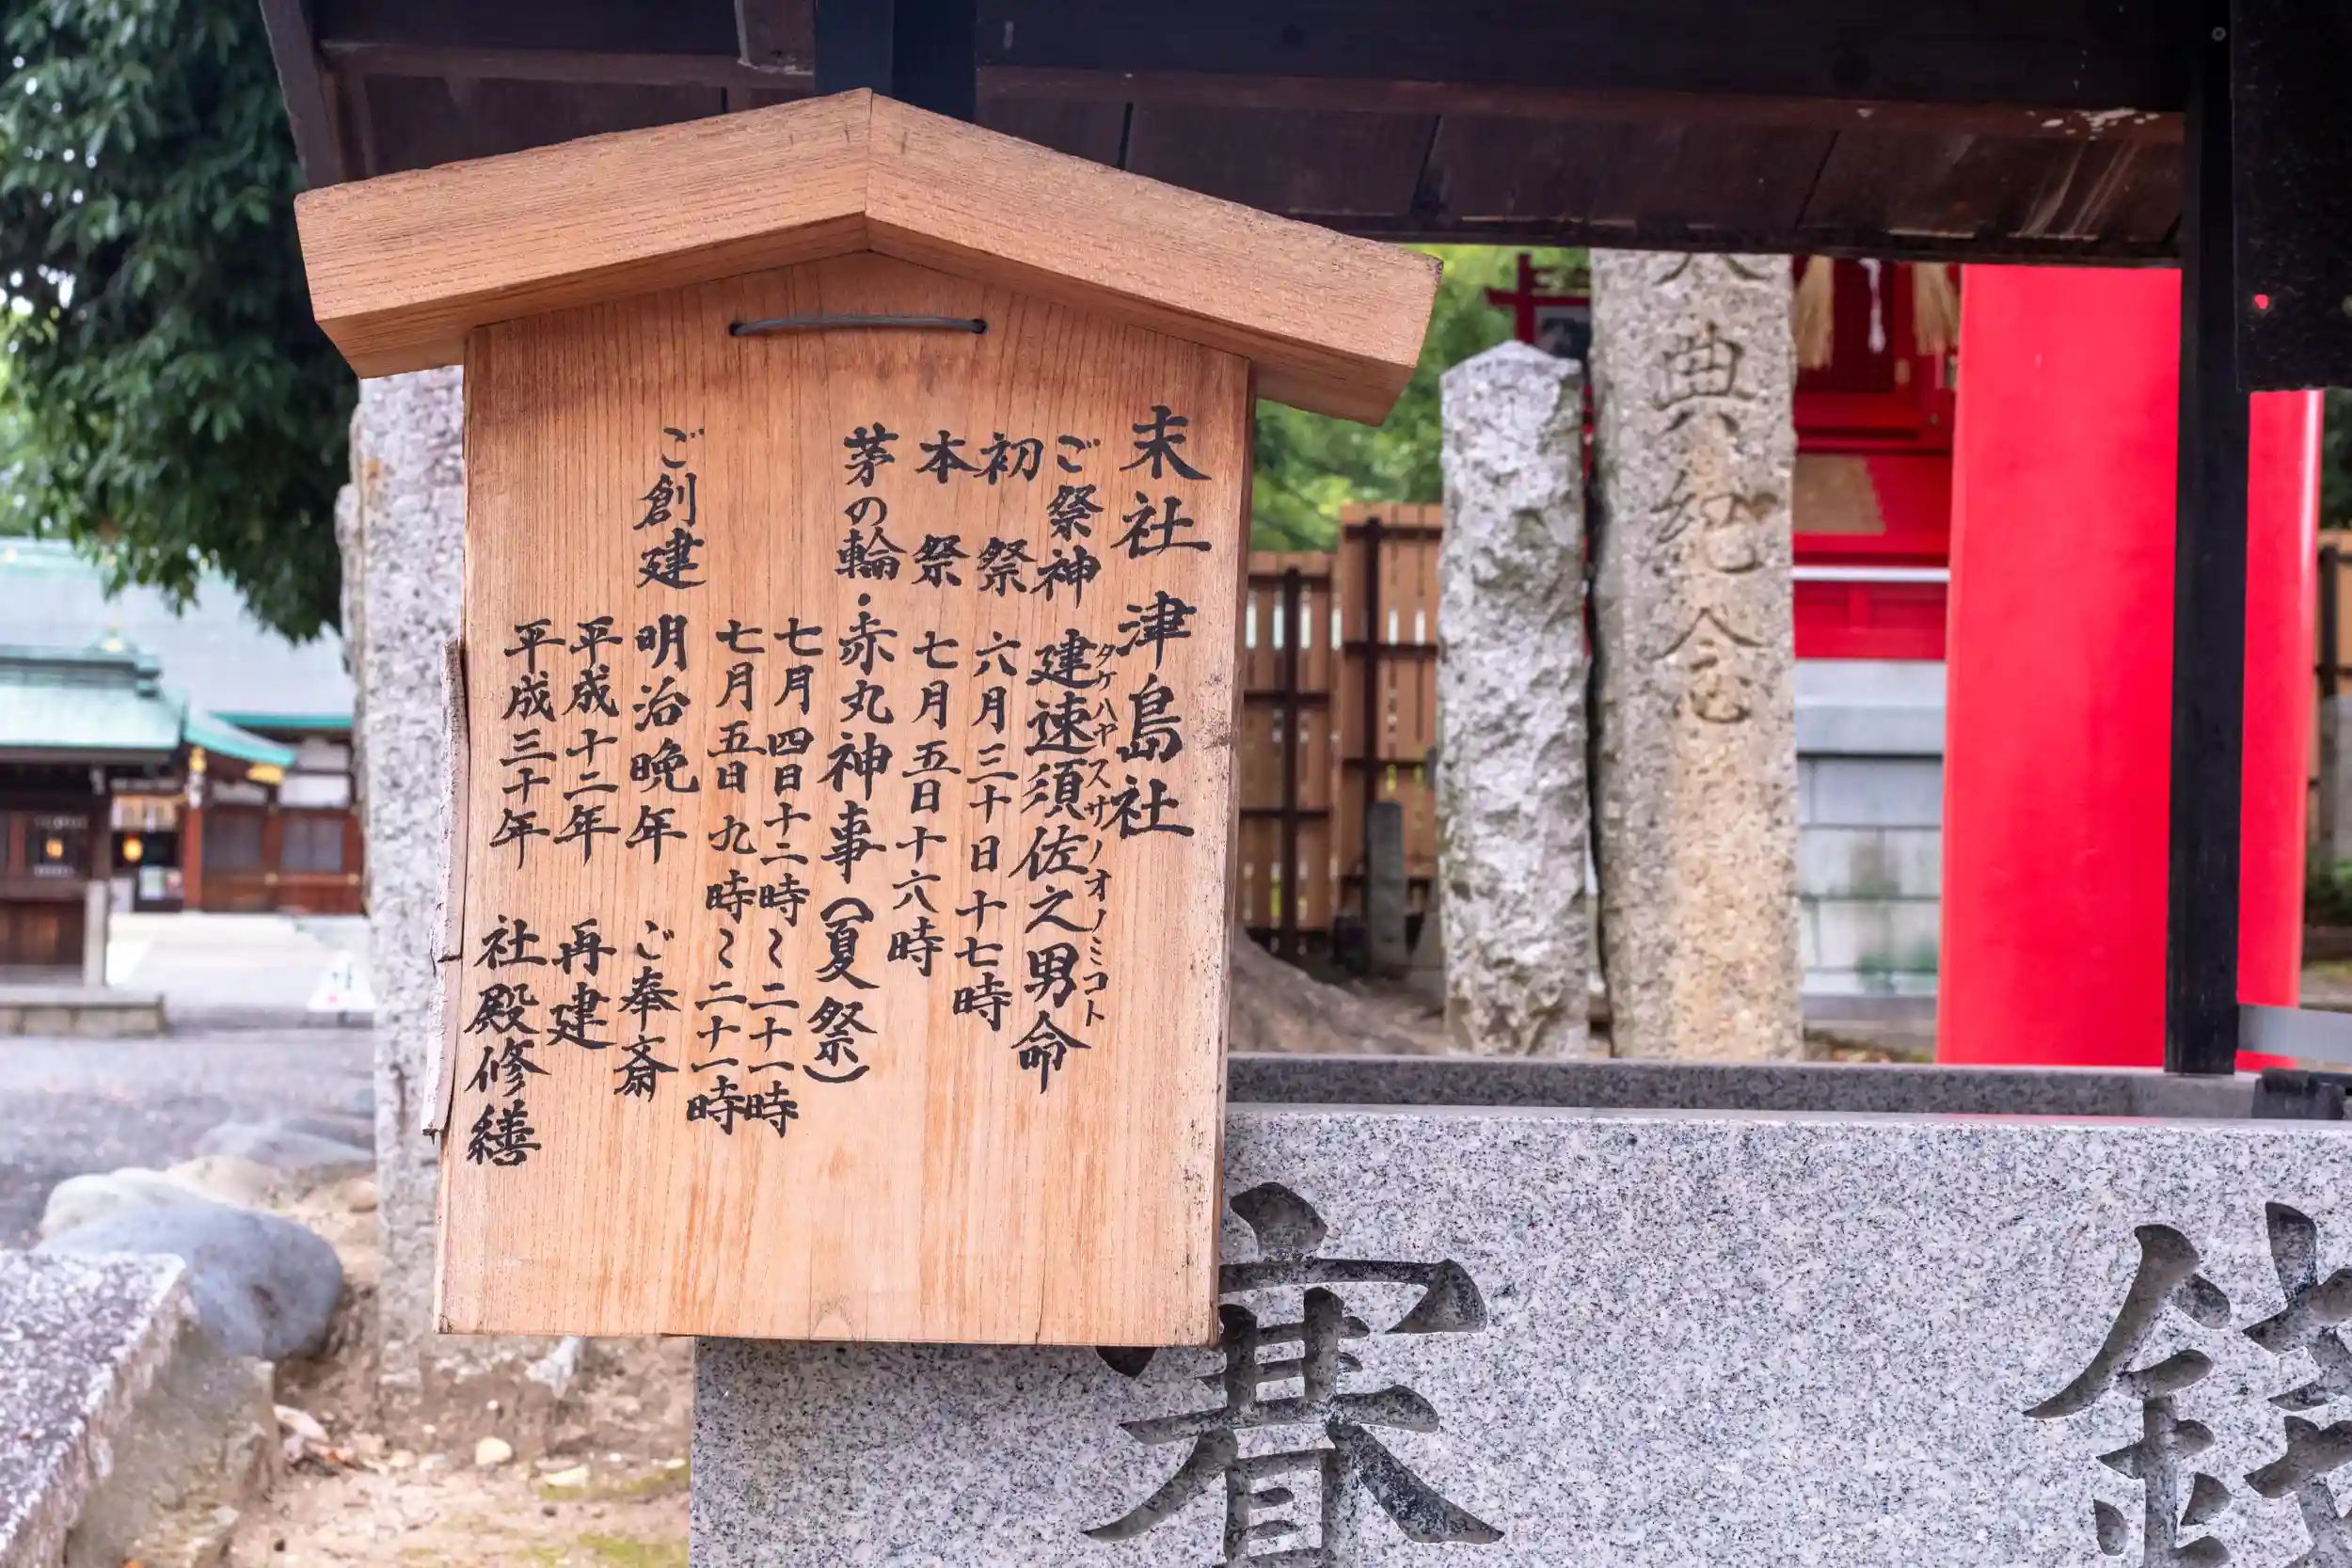 末社 津島社
ご祭神 建速須佐之男命
タケハヤスサノオノミコト
初祭 六月三十日十七時
本祭 七月五日十六時
茅の輪・赤丸神事(夏祭)
七月四日十二時〜二十一時
七月五日九時〜二十一時
ご創建 明治晩年 ご奉斎
平成十二年 再建
平成三十年 社殿修繕
典紀念
賽銭